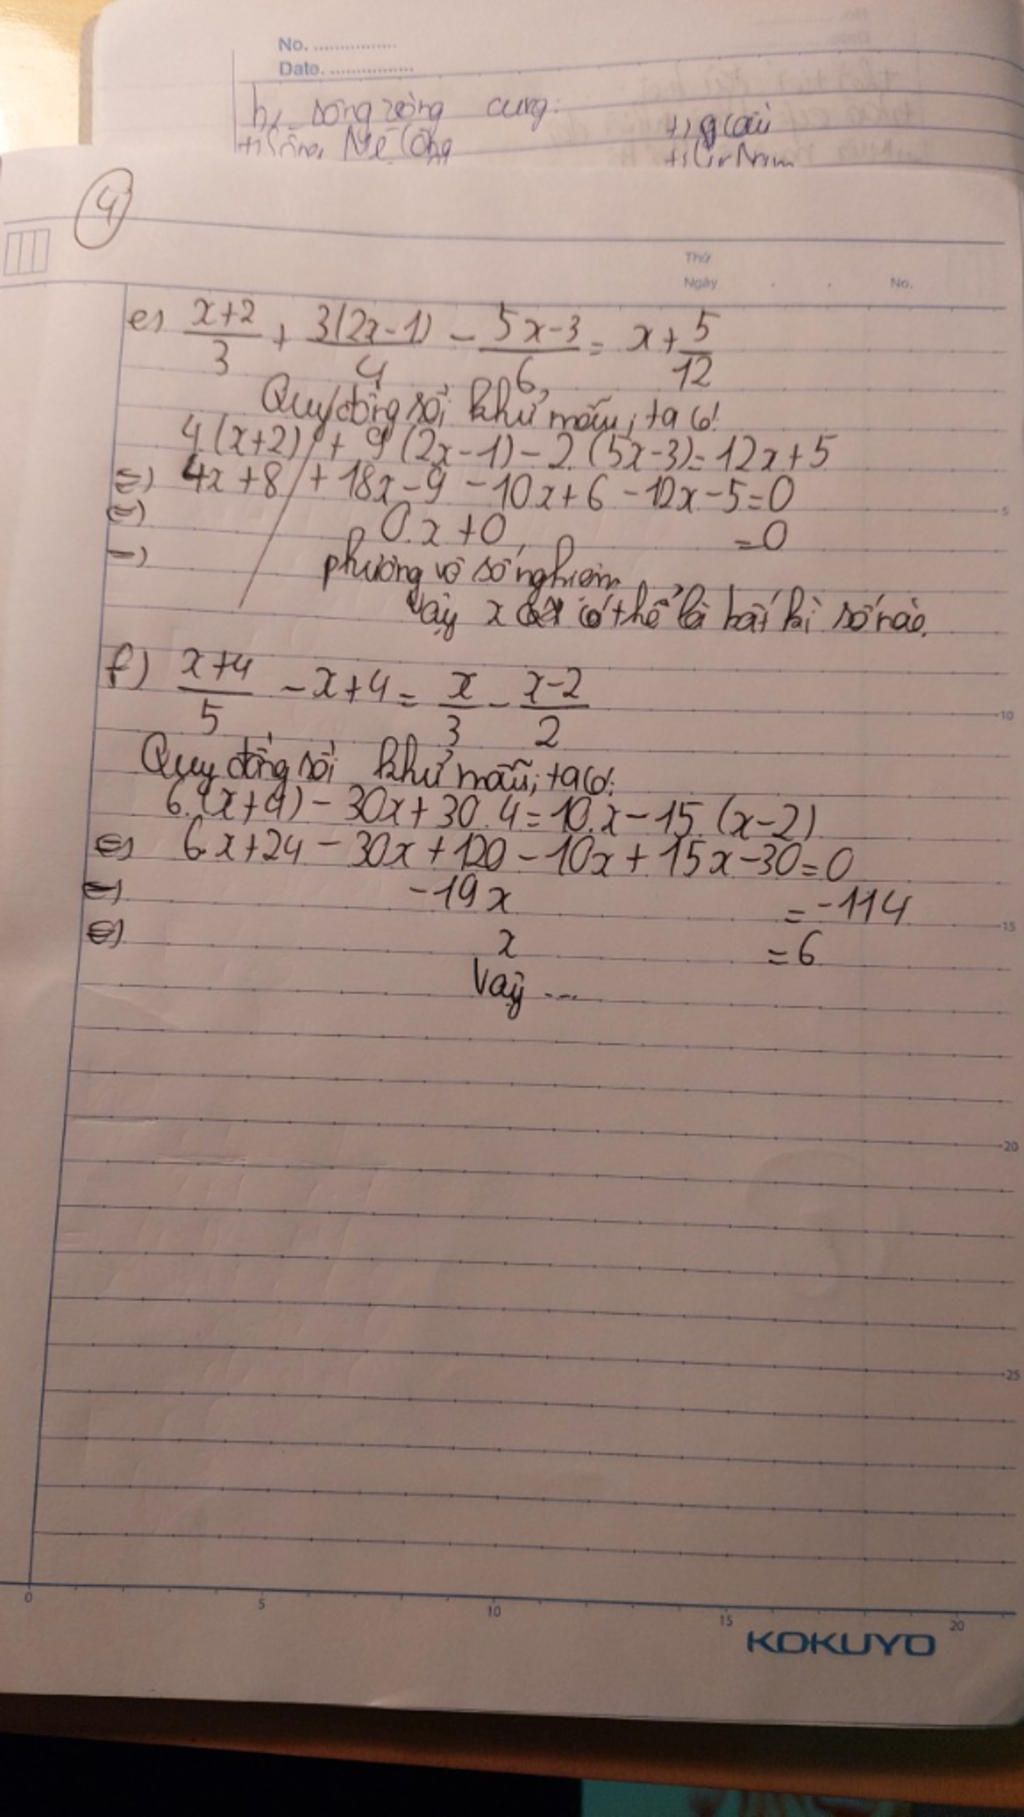 No. ................
Date. ................
b, sông vòng cung:
+, g cái
+, sông Mê Công
4
Thứ
Ngày . . No.
e) \frac{x+2}{3} + \frac{3(2x-1)}{4} - \frac{5x-3}{6} = x + \frac{5}{12}
Quy đồng rồi khử mẫu, ta có:
4.(x+2) + 9(2x-1) - 2.(5x-3) = 12x + 5
⇔) 4x + 8 + 18x - 9 - 10x + 6 - 12x - 5 = 0
⇔) 0.x + 0 = 0
⇔) phương vô số nghiệm
Vậy x có thể là bất kì số nào.
f) \frac{x+4}{5} - x + 4 = \frac{x}{3} - \frac{x-2}{2}
Quy đồng rồi khử mẫu, ta có:
6.(x+4) - 30x + 30.4 = 10.x - 15.(x-2)
⇔) 6x + 24 - 30x + 120 - 10x + 15x - 30 = 0
⇔) -19x = -114
⇔) x = 6
Vậy ...
5
10
15
20
25
0 5 10 15 20
KOKUYO